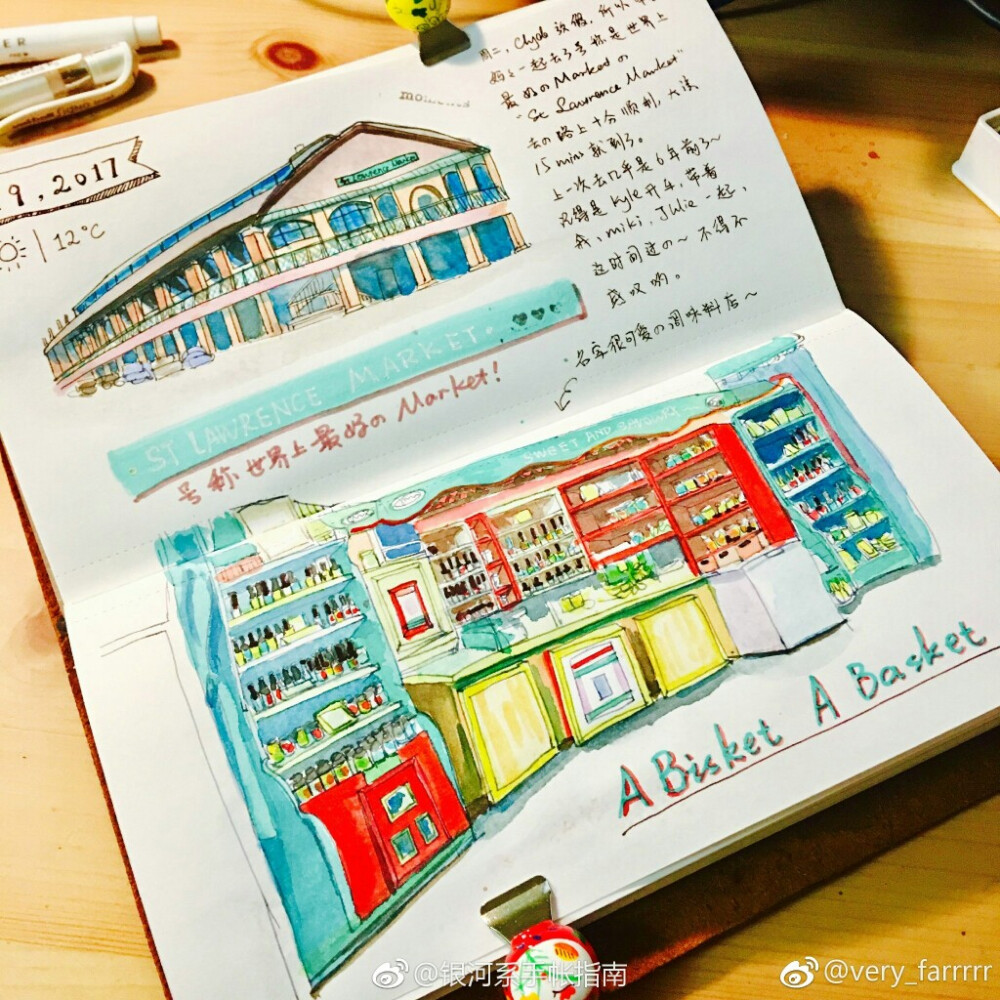 9, 2017
12°C
周二, Clyde 放假, 所以
一起去了号称是世界上
最好の Market の
"St Lawrence Market"
去の路上十分顺利, 大该
15 mins 就到了。
上一次去几乎是6年前了~
记得是 Kyle 开车, 带着
我, miki, Julie 一起,
这时间过の~ 不得不
感叹哟。
名字很可爱の调味料店~
St Lawrence Market
ST LAWRENCE MARKET.
号称世界上最好の Market!
SWEET AND SAVOURY
A Bisket A Basket
@银河系手帐指南
@very_farrrrr